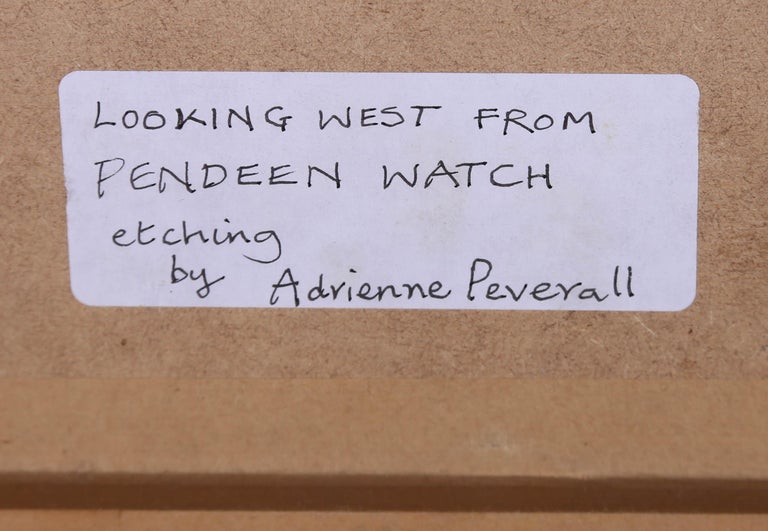 LOOKING WEST FROM
PENDEEN WATCH
etching
by Adrienne Peverall